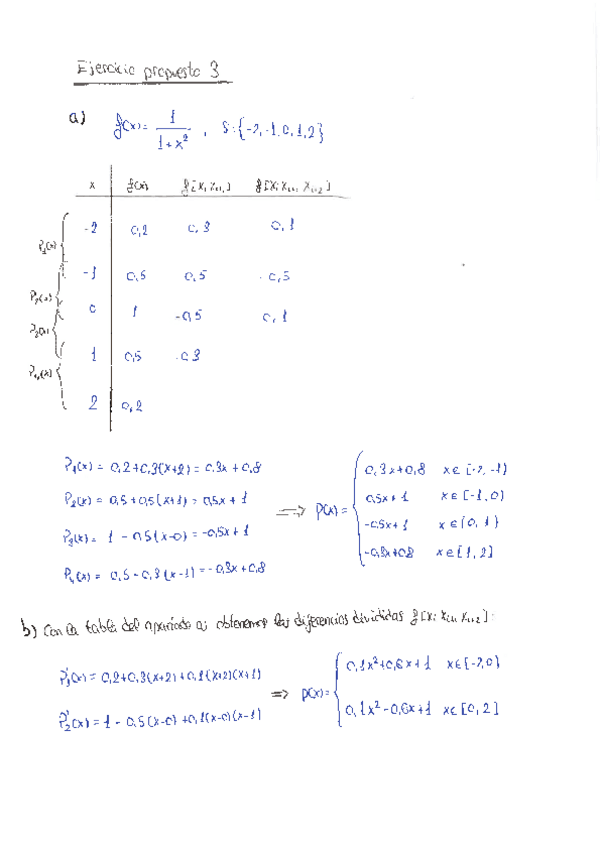 Ejercicio propuesto 3
a) f(x) = 1/(1+x²) , S:{-2,-1,0,1,2}
x f(x) f[xᵢ xᵢ₊₁] f[xᵢ xᵢ₊₁ xᵢ₊₂]
P₁(x) -2 0,2 0,3 0,1
-1 0,5 0,5 -0,5
P₂(x)
0 1 -0,5 0,1
P₃(x)
1 0,5 -0,3
P₄(x)
2 0,2
P₁(x) = 0,2+0,3(x+2) = 0,3x+0,8
P₂(x) = 0,5+0,5(x+1) = 0,5x+1
P₃(x) = 1-0,5(x-0) = -0,5x+1
P₄(x) = 0,5-0,3(x-1) = -0,3x+0,8
⇒ P(x) = {
0,3x+0,8 x∈[-2,-1)
0,5x+1 x∈[-1,0)
-0,5x+1 x∈[0,1)
-0,3x+0,8 x∈[1,2]
b) Con la tabla del apartado a) obtenemos las diferencias divididas f[xᵢ xᵢ₊₁ xᵢ₊₂]:
P₁'(x) = 0,2+0,3(x+2)+0,1(x+2)(x+1)
P₂'(x) = 1-0,5(x-0)+0,1(x-0)(x-1)
⇒ P(x) = {
0,1x²+0,6x+1 x∈[-2,0)
0,1x²-0,6x+1 x∈[0,2]